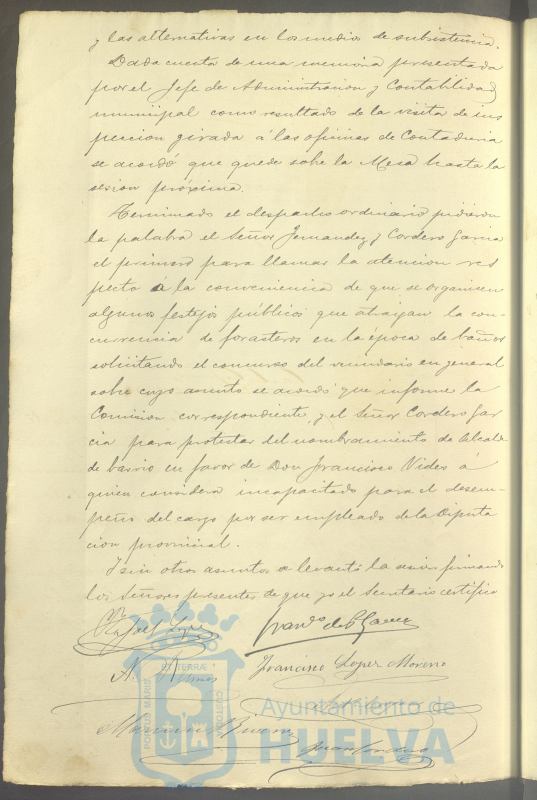 y las alternativas en los medios de subsistencia.
Dada cuenta de una memoria presentada
por el Jefe de Administracion y Contabilidad
municipal como resultado de la visita de ins
peccion girada á las oficinas de Contaduria
se acordó que quede sobre la Mesa hasta la
sesion próxima.
Terminado el despacho ordinario pidieron
la palabra el Señor Fernandez y Cordero Garcia
el primero para llamar la atencion res
pecto á la conveniencia de que se organicen
algunos festejos públicos que atraigan la con
currencia de forasteros en la época de baños
solicitando el concurso del vecindario en general
sobre cuyo asunto se acordó que informe la
Comision correspondiente, y el Señor Cordero Gar
cia para protestar del nombramiento de Alcalde
de barrio en favor de Don Francisco Vides á
quien considera incapacitado para el desem-
peño del cargo por ser empleado de la Diputa
cion provincial.
Y sin otros asuntos se levantó la sesion firmando
los Señores presentes de que yo el Secretario certifico
Rafael Lopez
A. Ramos Francisco Lopez Moreno
PORTUS MARIS ET TERRÆ CUSTODIA
Ayuntamiento de
HUELVA
Juan Cordero